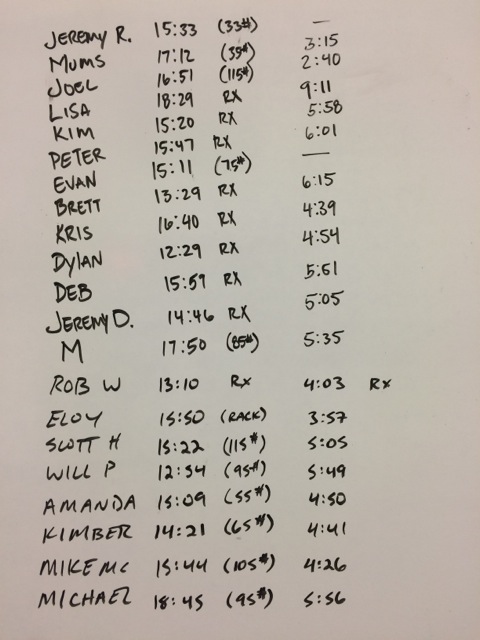 JEREMY R. 15:33 (33#) —
MUMS 17:12 (35#) 3:15
JOEL 16:51 (115#) 2:40
LISA 18:29 RX 9:11
KIM 15:20 RX 5:58
PETER 15:47 RX 6:01
EVAN 15:11 (75#) —
BRETT 13:29 RX 6:15
KRIS 16:40 RX 4:39
DYLAN 12:29 RX 4:54
DEB 15:59 RX 5:51
JEREMY D. 14:46 RX 5:05
M 17:50 (85#) 5:35
ROB W 13:10 RX 4:03 RX
ELOY 15:50 (RACK) 3:57
SCOTT H 15:22 (115#) 5:05
WILL P 12:34 (95#) 5:49
AMANDA 15:09 (55#) 4:50
KIMBER 14:21 (65#) 4:41
MIKE MC 15:44 (105#) 4:26
MICHAEL 18:45 (95#) 5:56